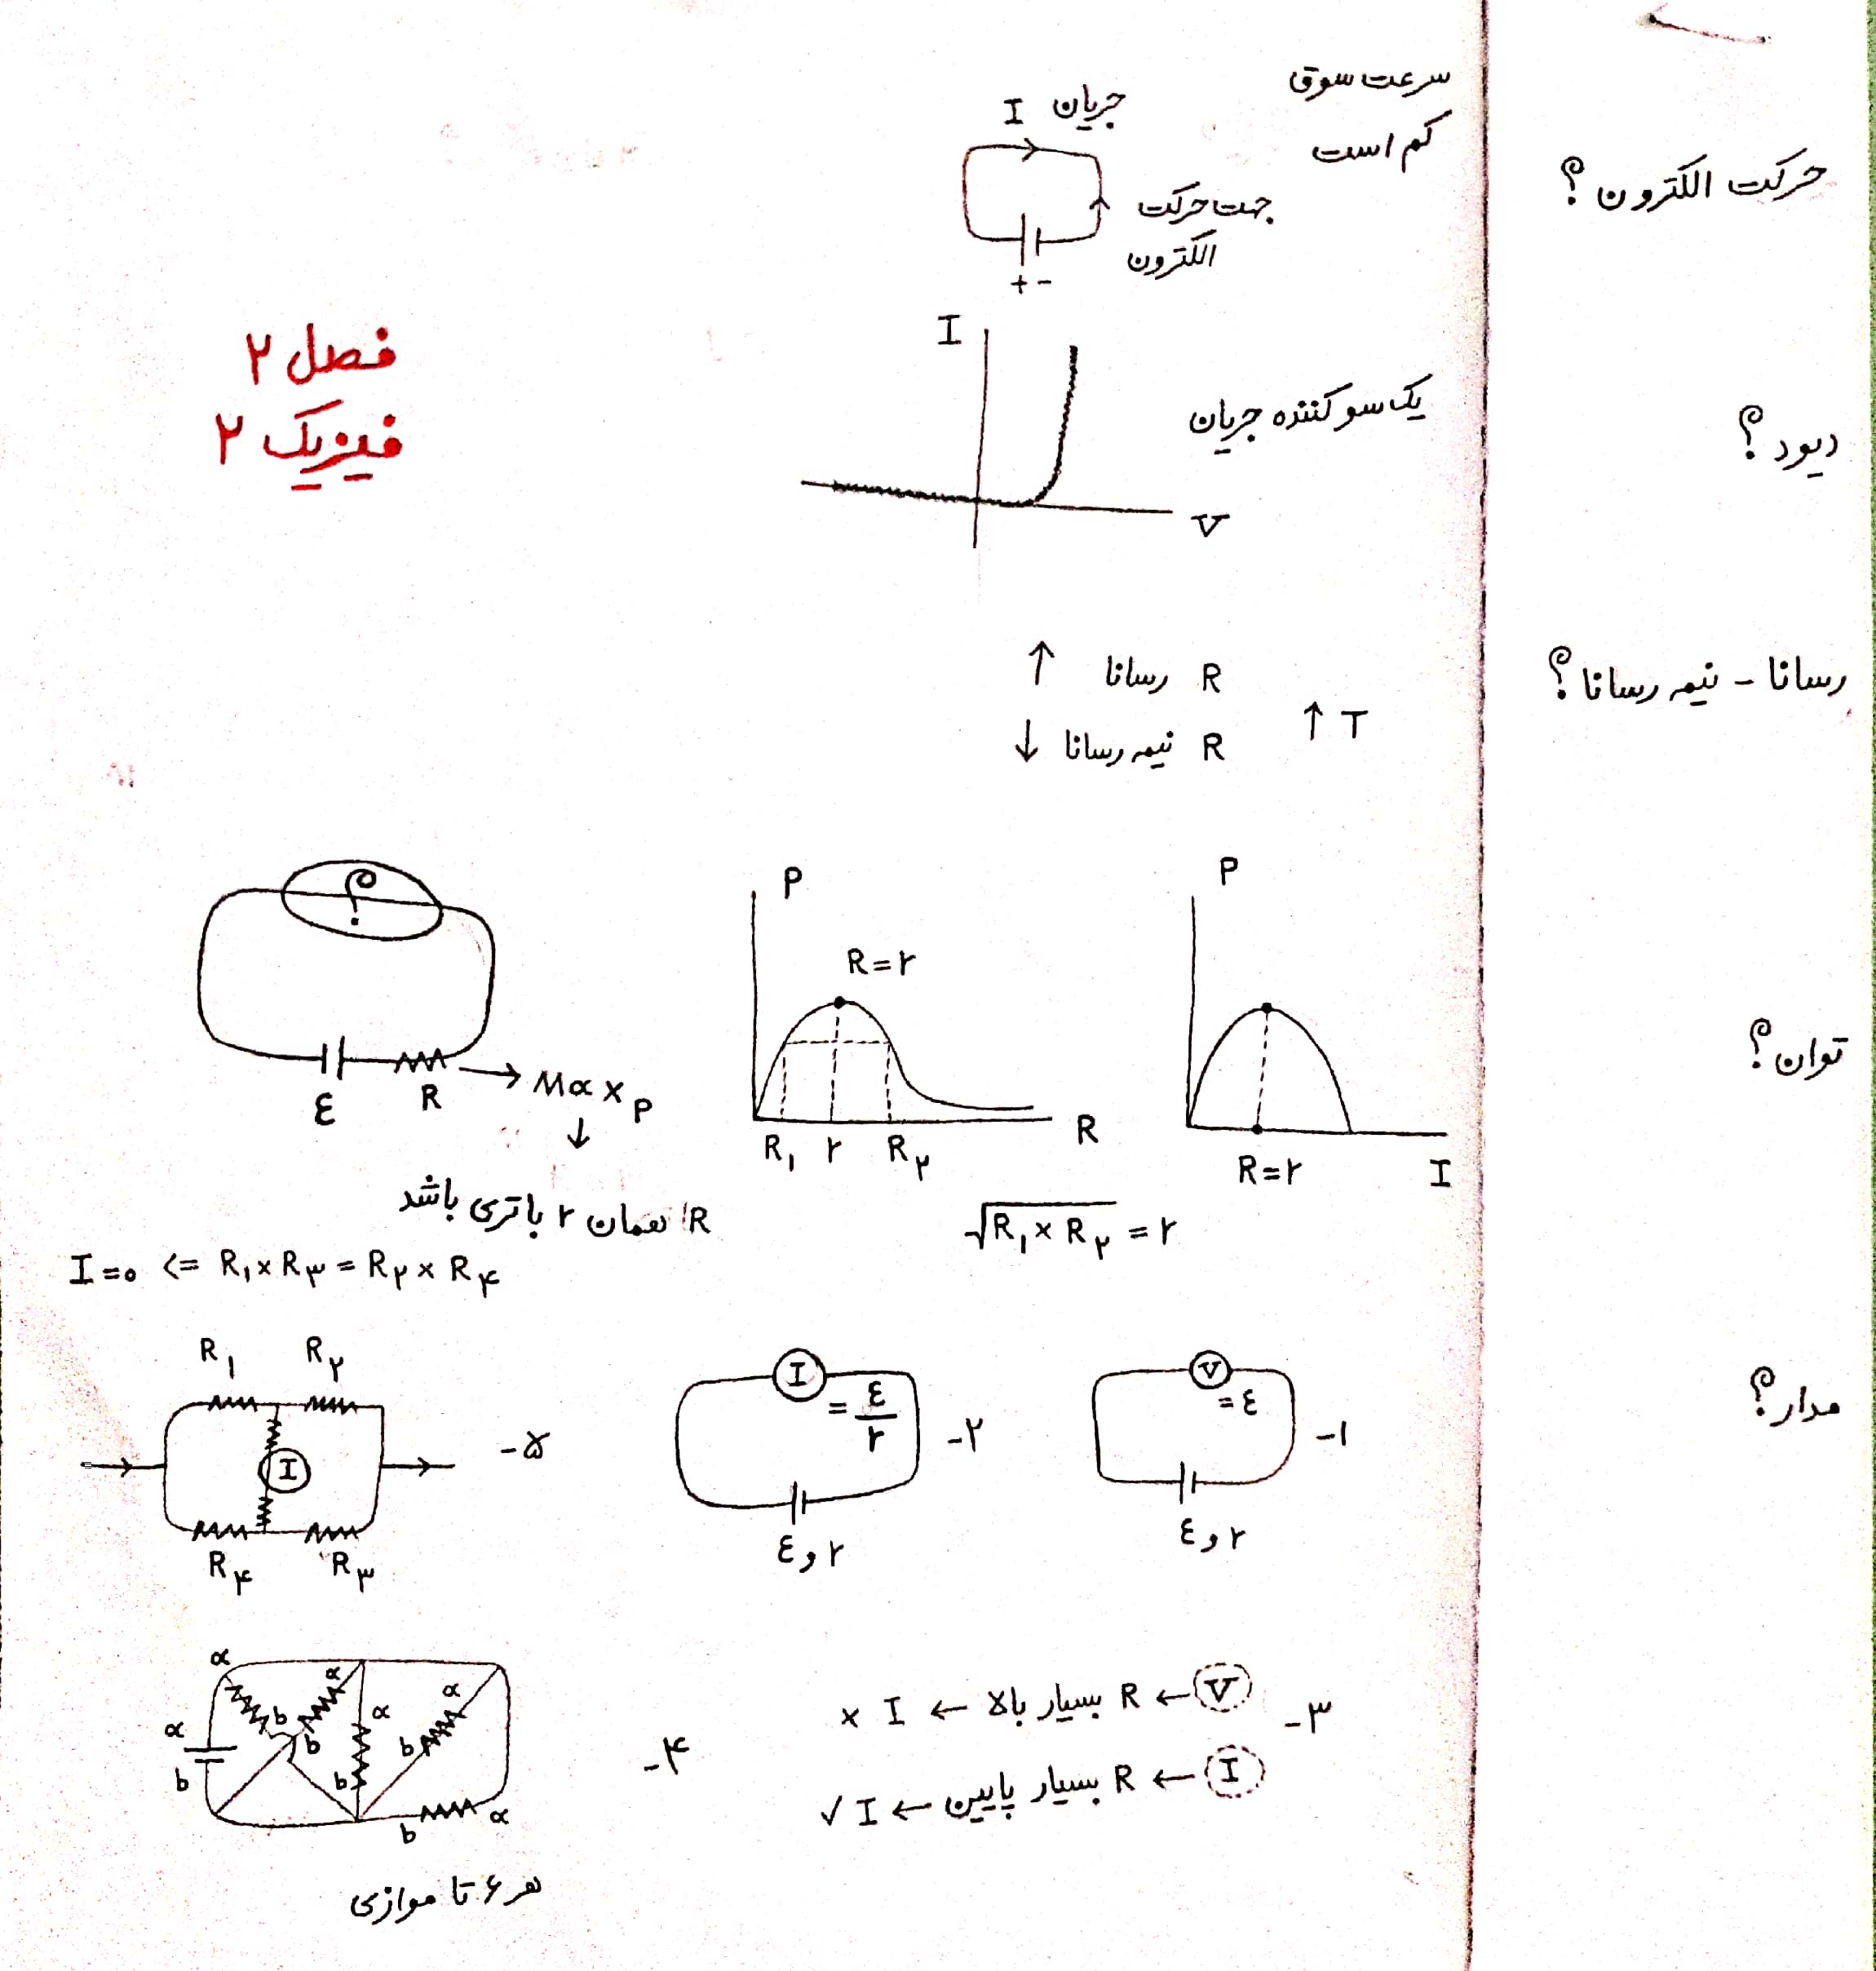 فصل ۲
فیزیک ۲
حرکت الکترون؟
سرعت سوق
کم است
I جریان
جهت حرکت
الکترون
+ -
دیود؟
یک سو کننده جریان
I
V
رسانا - نیمه رسانا؟
T ↑
R رسانا ↑
R نیمه رسانا ↓
توان؟
P
R=r
I
P
R=r
R₁ r R₂
R
√R₁×R₂ = r
؟
ε R → Max P
↓
R همان r باتری باشد
مدار؟
۱-
V
= ε
ε و r
۲-
I
= ε/r
ε و r
۳-
V → R بسیار بالا → I ×
I → R بسیار پایین → I ✓
۵-
R₁×R₃ = R₂×R₄ => I=0
R₁ R₂
I
R₄ R₃
۴-
a a a a
b b b b
a b
b a
هر ۶ تا موازی